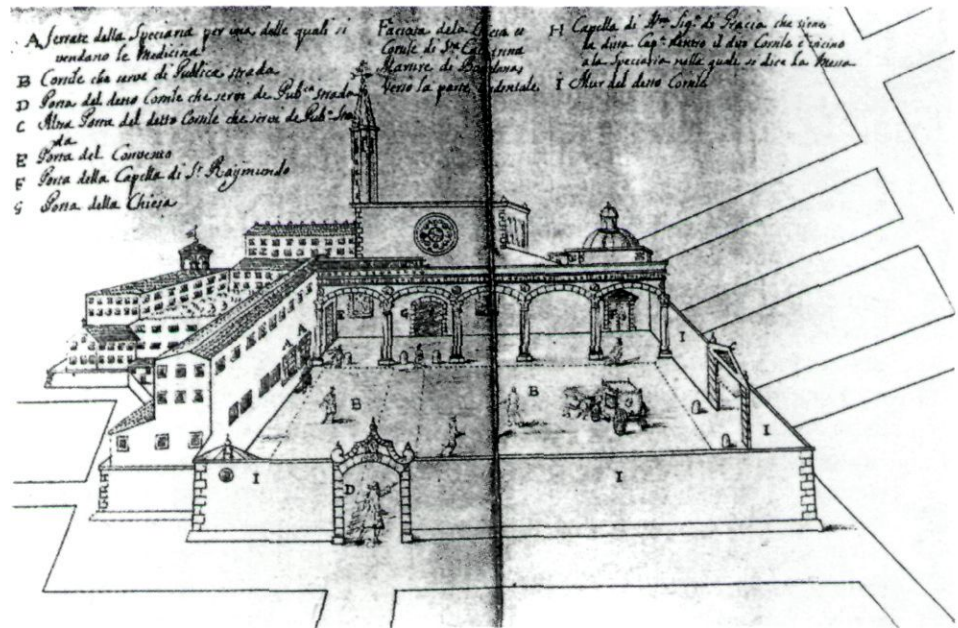 A ferrate della Speciaria per una delle quali si
vendano le Medicina
B Cortile che serve di Publica strada
D Porta del detto Cortile che serve de Pub.ca strada
C Altra Porta del detto Cortile che serve de Pub.a stra
da
E Porta del Convento
F Porta della Capella di S.t Raymundo
G Porta della Chiesa
Faciata dela Chiesa et
Cortile di S.ta Catterina
Martire de
Verso la parte
H Capella di Sig.ra di Gracia che
la detta Cap.a dentro il dito Cortile e vicino
ala Speciaria nella quali si dice la Messa
I Mur del detto Cortile
A
E
G
F
I
C
B
B
I
I
D
I